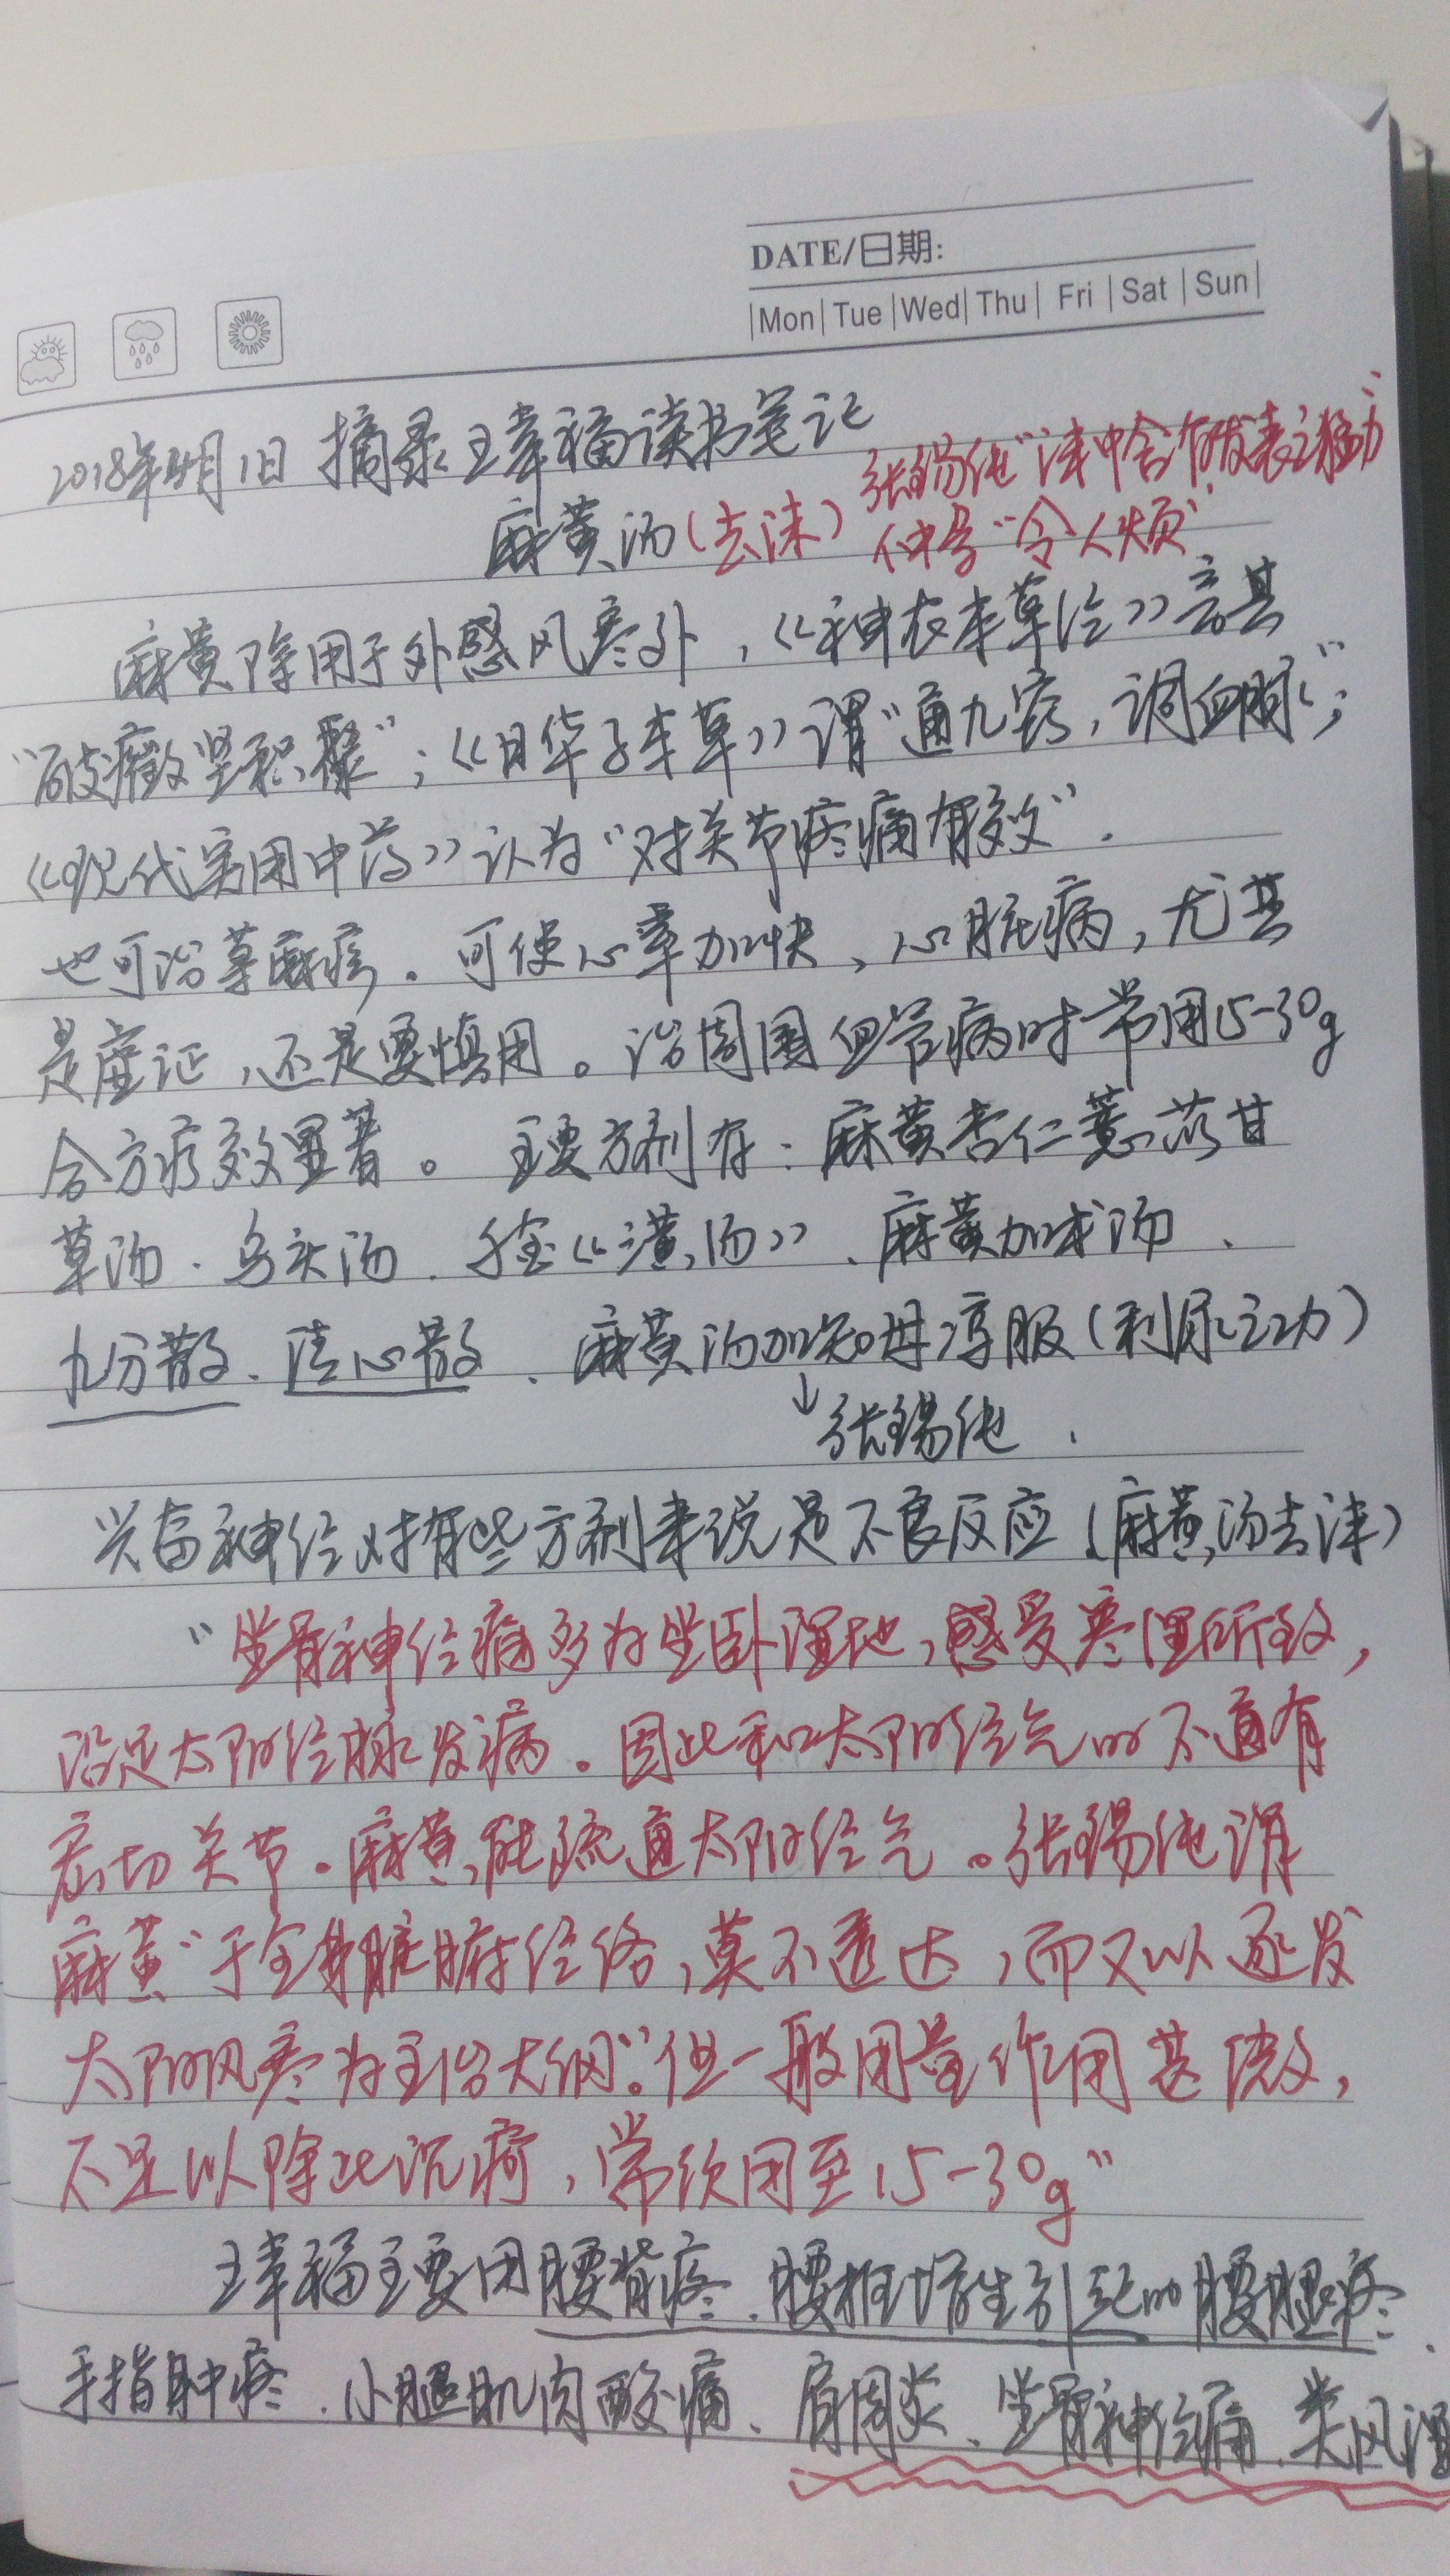 DATE/日期:
Mon Tue Wed Thu Fri Sat Sun
2018年4月1日 摘录王幸福读书笔记
张锡纯"沫中含有发表之猛力"
麻黄汤(去沫) 仲景"令人烦"
麻黄除用于外感风寒外,《神农本草经》言其
"破癥坚积聚";《日华子本草》谓"通九窍,调血脉";
《现代实用中药》认为"对关节疼痛有效".
也可治荨麻疹。可使心率加快、心脏病,尤其
是虚证,还是要慎用。治周围血管病时常用15-30g
合方疗效显著。主要方剂有:麻黄杏仁薏苡甘
草汤、乌头汤、千金《汤》、麻黄加术汤、
九分散、清心散、麻黄汤加知母淳服(利尿之功)
↓张锡纯.
兴奋神经对有些方剂来说是不良反应(麻黄汤去沫)
"坐骨神经痛多为坐卧湿地,感受寒湿所致,
沿足太阳经脉发病。因此和太阳经气的不通有
密切关节。麻黄能疏通太阳经气。张锡纯谓
麻黄"于全身脏腑经络,莫不透达,而又以逐发
太阳风寒为主治大纲"。但一般用量作用甚微,
不足以除此沉疴,常须用至15-30g"
王幸福主要用腰背疼、腰椎增生引起的腰腿疼、
手指肿疼、小腿肌肉酸痛、肩周炎、坐骨神经痛、类风湿